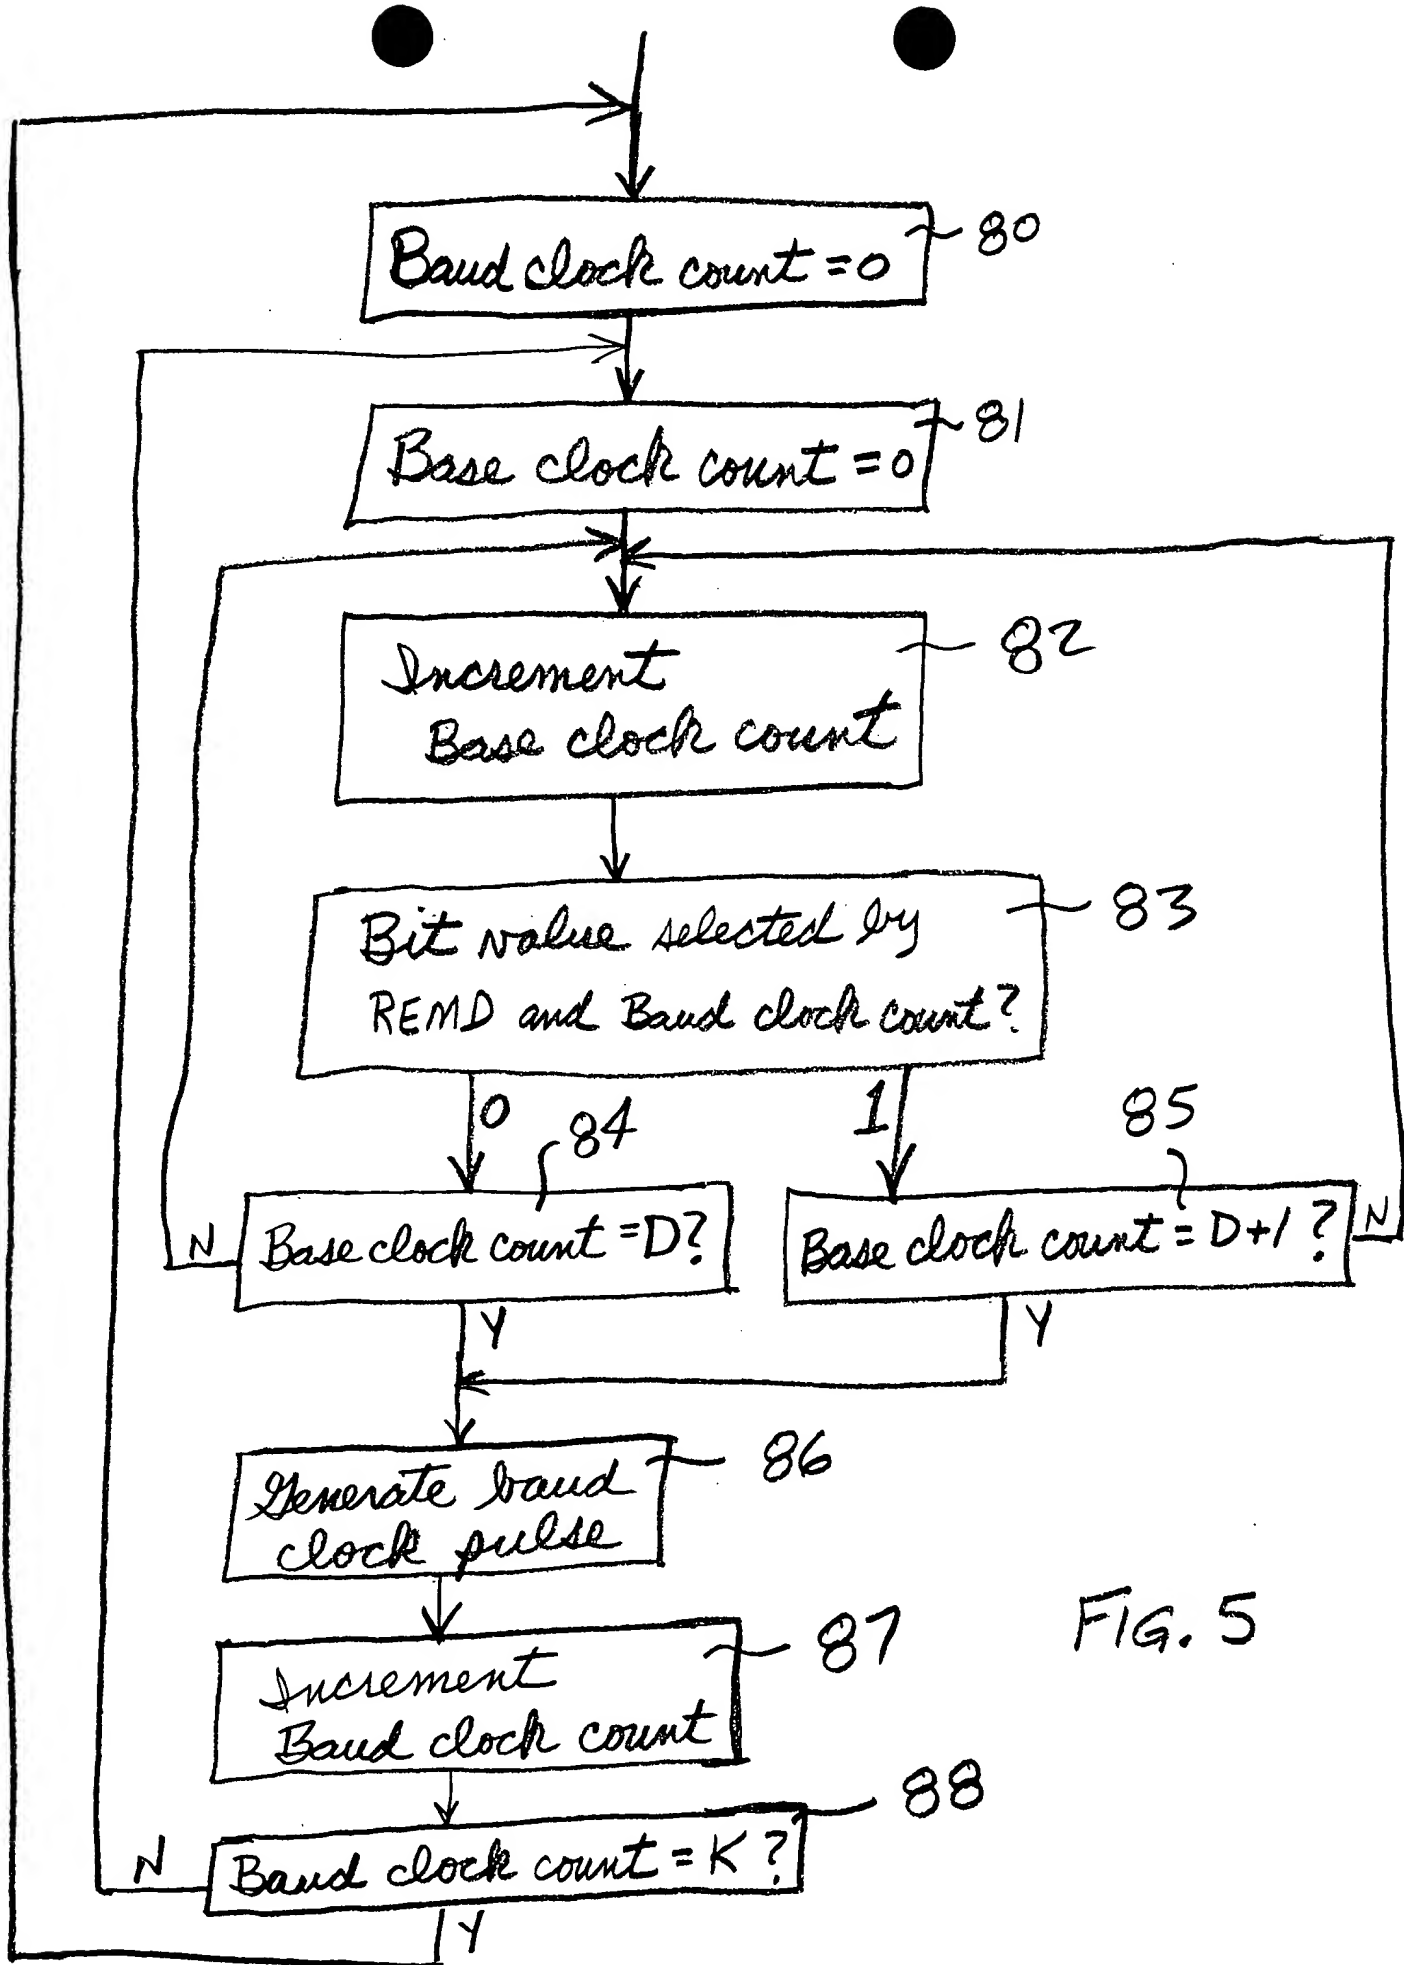 Baud clock count = 0
80
Base clock count = 0
81
Increment
Base clock count
82
Bit value selected by
REMD and Baud clock count?
83
0
1
84
85
N
Base clock count = D?
Base clock count = D+1 ?
N
Y
Y
Generate baud
clock pulse
86
Increment
Baud clock count
87
FIG. 5
88
N
Baud clock count = K ?
Y